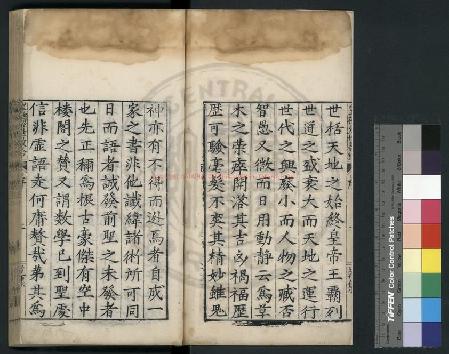 世括天地之始終皇帝王霸列
世道之盛衰大而天地之運行
世代之興廢小而人物之臧否
智愚又微而日用動靜云爲草
木之榮瘁開落其吉凶禍福歷
歷可驗毫髮不爽其精妙雖鬼
神亦有不得而逃焉者自成一
家之書非他讖緯諸術所可同
日而語者誠發前聖之未發者
也先正稱爲振古豪傑有空中
樓閣之贊又謂數學已到聖處
信非虛語走何庸贅哉第其爲
CENTRAL
TIFFEN Color Control Patches